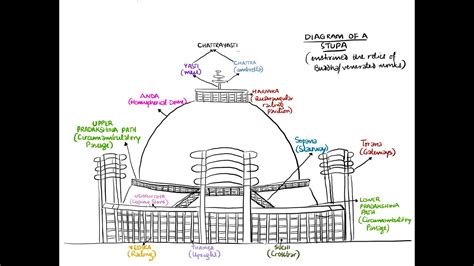 CHATTRAYASTI
YASTI
(mast)
CHATRA
(umbrella)
DIAGRAM OF A
STUPA
(enshrined the relics of
Buddha/venerated monks)
HARMIKA
(Rectangular
railing
pavilion)
ANDA
(Hemispherical Dome)
UPPER
PRADAKSHINA PATH
(Circumambulatory
Passage)
Sopana
(Stairway)
Torana
(Gateways)
LOWER
PRADAKSHINA
PATH
(Circumambulatory
Passage)
VEDIKA
(Railing)
THAMBA
(Upright)
SUCHI
(Crossbar)